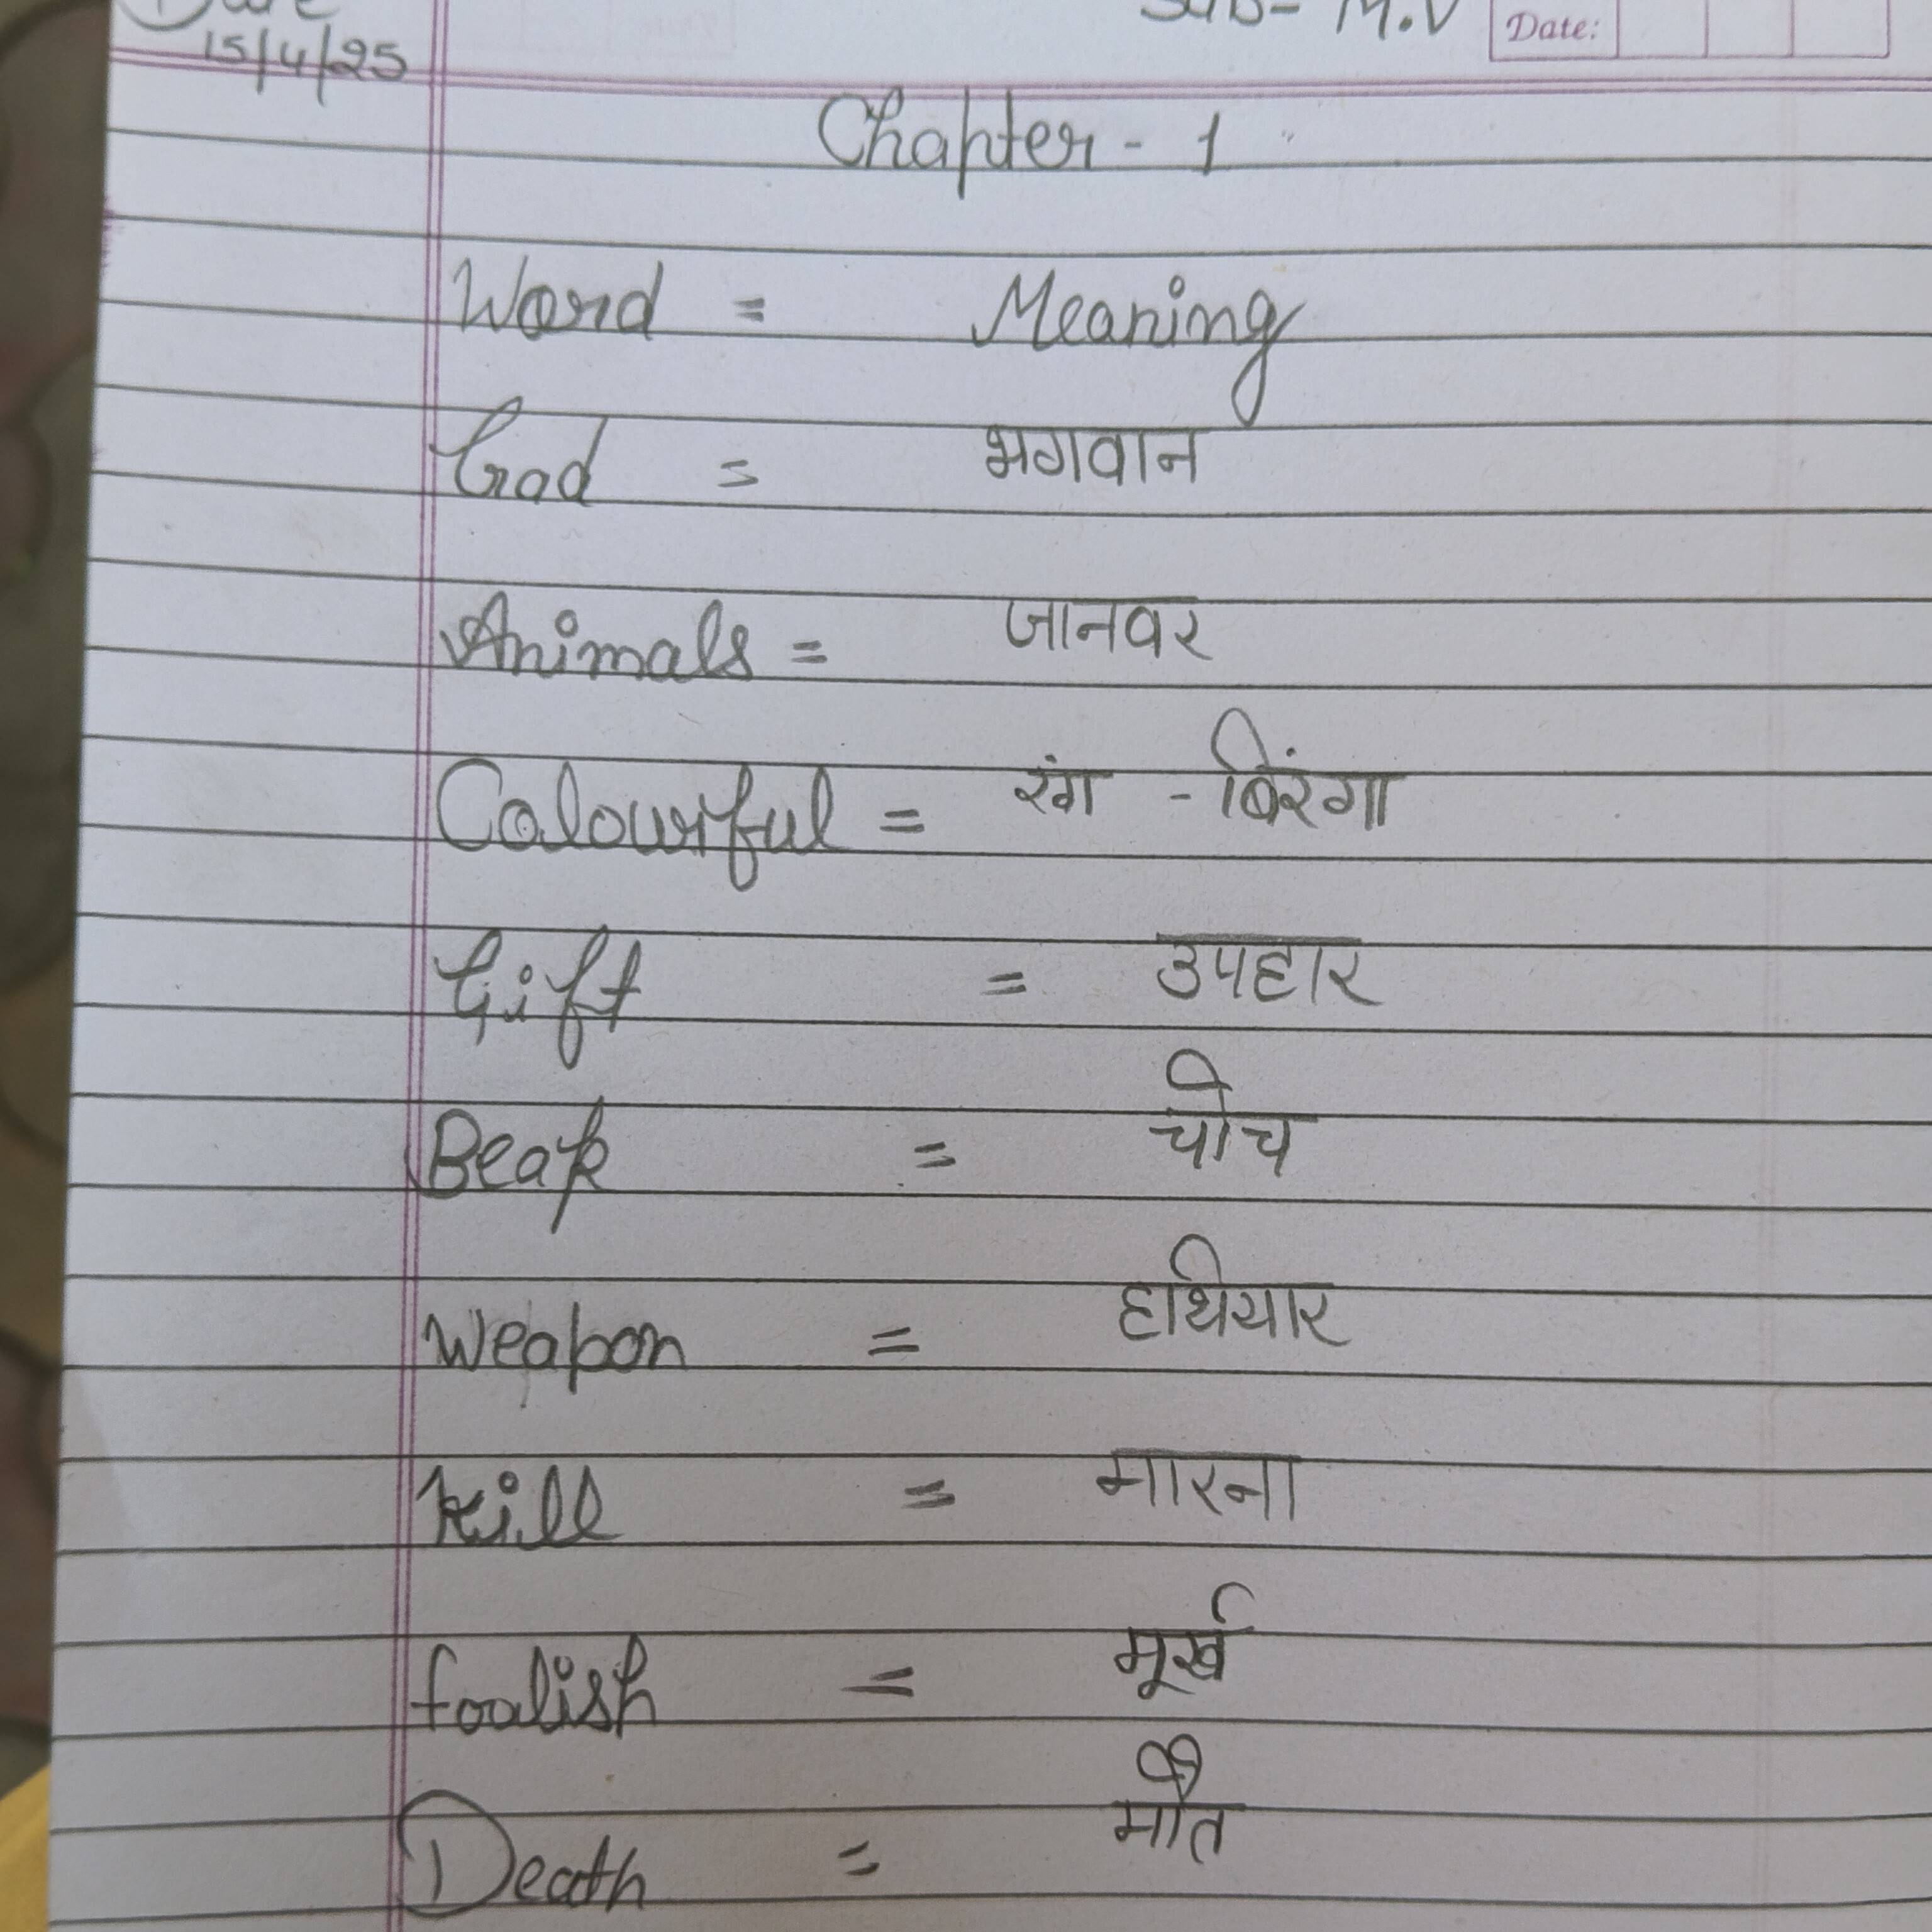 Date
15/4/25
Sub- M.V
Date:
Chapter - 1
Word = Meaning
God = भगवान
Animals = जानवर
Colourful = रंग - बिरंगा
Gift = उपहार
Beak = चोच
Weapon = हथियार
kill = मारना
foolish = मूर्ख
Death = मौत